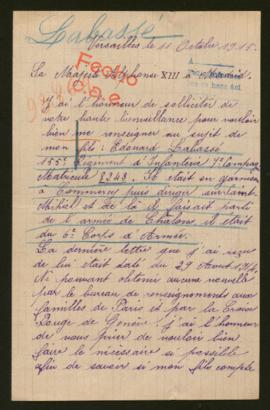 Labassé
Versailles le 11 Octobre 1915.
Fecho
Sa Majesté Alphonse XIII à Madrid
J'ai l'honneur de solliciter de
votre haute bienveillance pour vouloir
bien me renseigner au sujet de
mon fils : Edouard Labassé
155e Régiment d'Infanterie 9e Compag
Matricule 2248. Il était en garnison
à Commercy puis diriger sur Saint
Mihiel et de là il faisait parti
de l'armée de Chalons il était
du 6e Corps d'Armée.
La dernière lettre que j'ai reçu
de lui était daté du 29 Août 1914.
Ne pouvant obtenir aucune nouvelle
par le bureau de renseignements aux
familles de Paris et par la Croix
Rouge de Genève ; j'ai l'honneur
de vous prier de vouloir bien
faire le nécessaire si possible
afin de savoir si mon fils compte